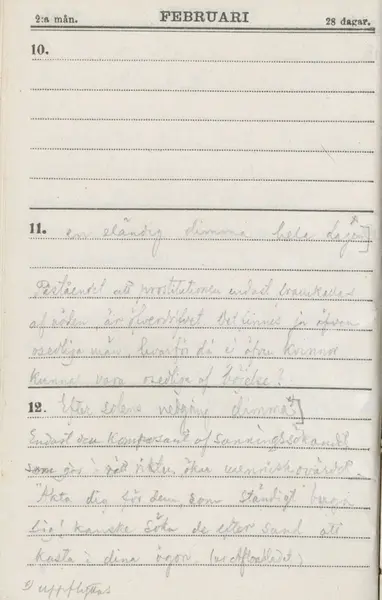 2:a mån. FEBRUARI 28 dagar.
10.
11. en eländig dimma hela dagen]
Påståendet att prostitutionen endast
af nöden är öfverdrifvet. Det finnes ju äfven
osedliga män, hvarför då i även kvinnor
kunna vara osedliga af börd?
12. Efter solens nedgång dimma]
Endast den komposant af sanningssökandet
som går i rätt riktn. ökar menniskovärdet.
"Akta dig för dem som ständigt
sig! kanske söka de efter sand att
kasta i dina ögon. (ur Aftonbladet)
uppflyttas